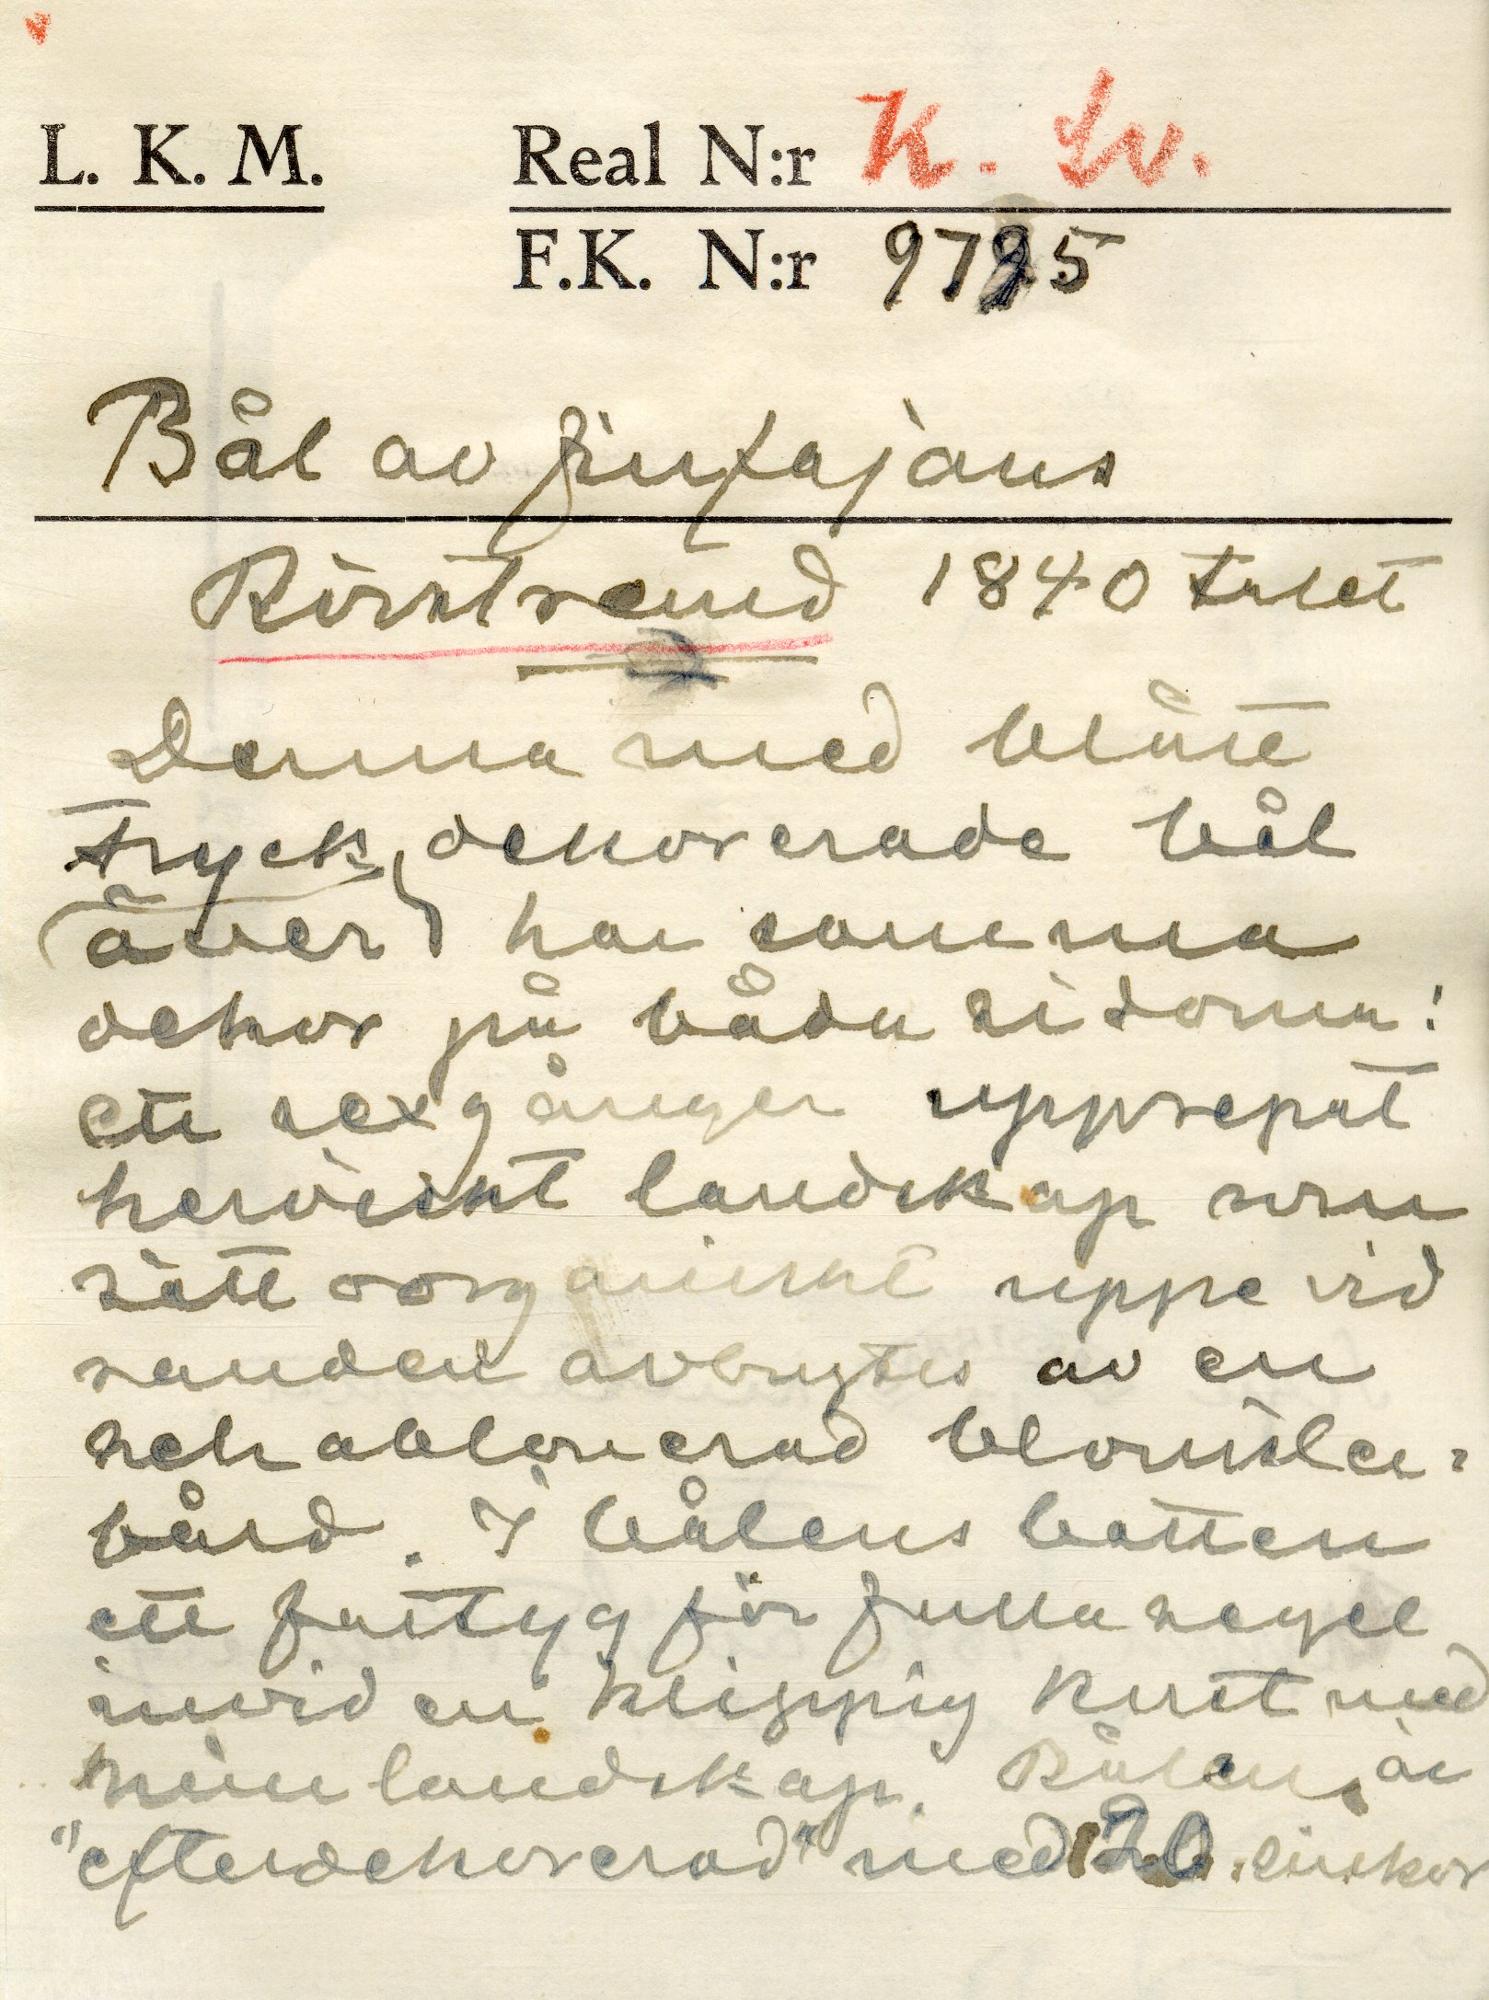 L. K. M. Real N:r K. Sv.
F.K. N:r 9725
Bål av finfajans
Rörstrand 1840 talet
Denna med blått
tryck dekorerade bål
(över) har samma
dekor på båda sidorna:
ett sexgånger upprepat
heroiskt landskap som
sätt oorganiskt uppe vid
randen avbrytes av en
schablonerad blomster-
bård. I bålens botten
ett fartyg för fulla segel
invid en klippig kust med
ruinlandskap. Bålen är
"efterdekorerad" med 120 limkor